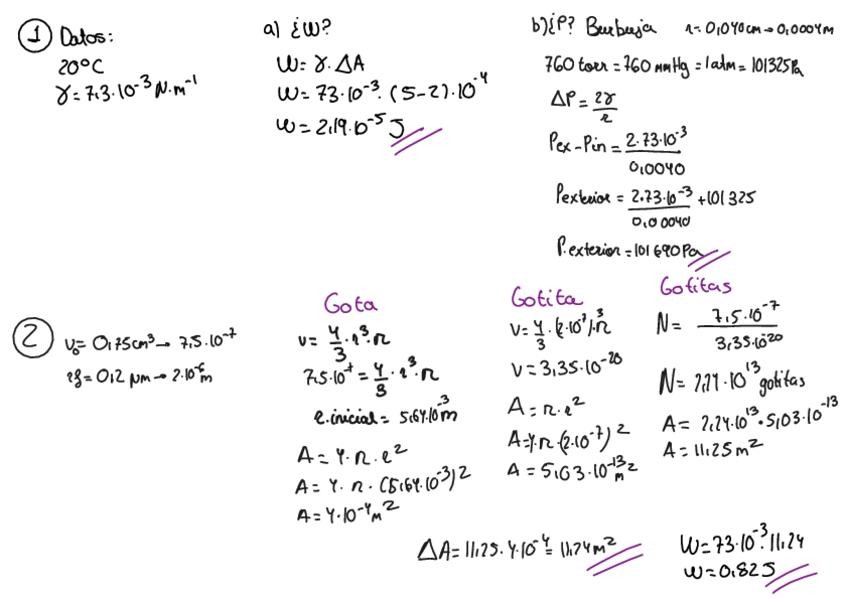 1 Datos:
20°C
γ = 7,3·10⁻³ N·m⁻¹
a) ¿W?
W = γ·ΔA
W = 73·10⁻³·(5-2)·10⁻⁴
W = 2,19·10⁻⁵ J
b) ¿P? Burbuja r = 0,040cm → 0,0004m
760 torr = 760 mmHg = 1 atm = 101325 Pa
ΔP = 2γ/r
Pex - Pin = 2·73·10⁻³/0,0040
Pexterior = 2·73·10⁻³/0,00040 + 101325
P.exterior = 101690 Pa
2 V₀ = 0,75cm³ → 7,5·10⁻⁷
rf = 0,2 μm → 2·10⁻⁶m
Gota
V = 4/3·r³·π
7,5·10⁻⁷ = 4/3·r³·π
r.inicial = 5,64·10⁻³m
A = 4·π·r²
A = 4·π·(5,64·10⁻³)²
A = 4·10⁻⁴m²
Gotita
V = 4/3·(2·10⁻⁷)³·π
V = 3,35·10⁻²⁰
A = π·r²
A = 4·π·(2·10⁻⁷)²
A = 5,03·10⁻¹³m²
Gotitas
N = 7,5·10⁻⁷/3,35·10⁻²⁰
N = 2,24·10¹³ gotitas
A = 2,24·10¹³·5,03·10⁻¹³
A = 11,25m²
ΔA = 11,25·4·10⁻⁴ = 11,24m²
W = 73·10⁻³·11,24
W = 0,82J